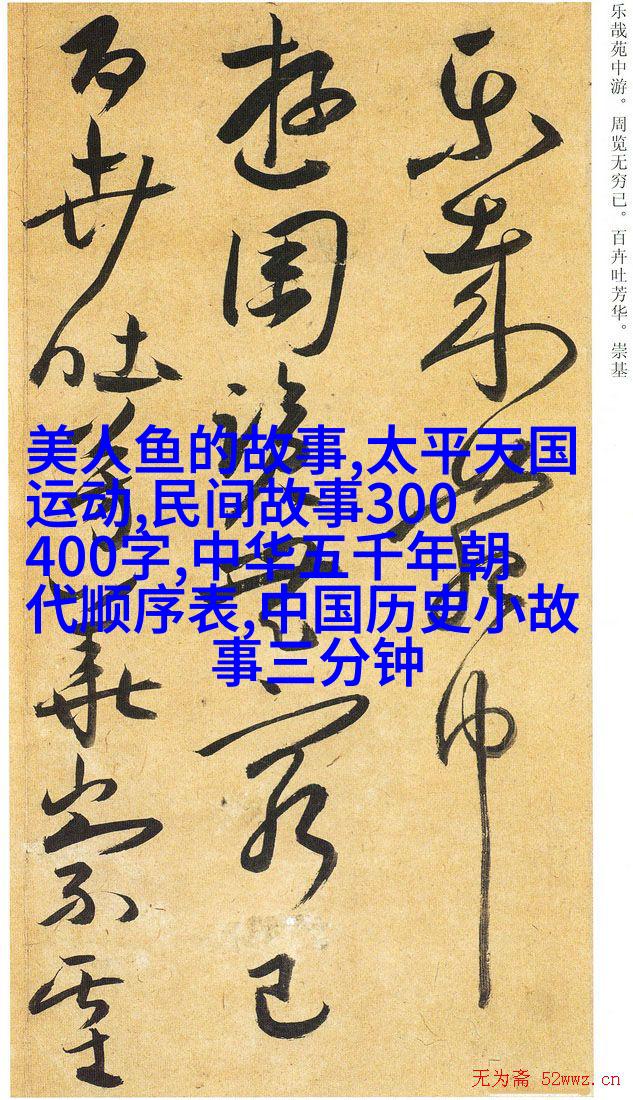 乐哉苑中游。周览无穷已。百卉吐芳华。崇基
樂哉苑中
遊周覽無窮已
百卉吐芳華崇基
美人鱼的故事,太平天国
运动,民间故事300
400字,中华五千年朝
代顺序表,中国历史小故
事三分钟
无为斋 52wwz.cn